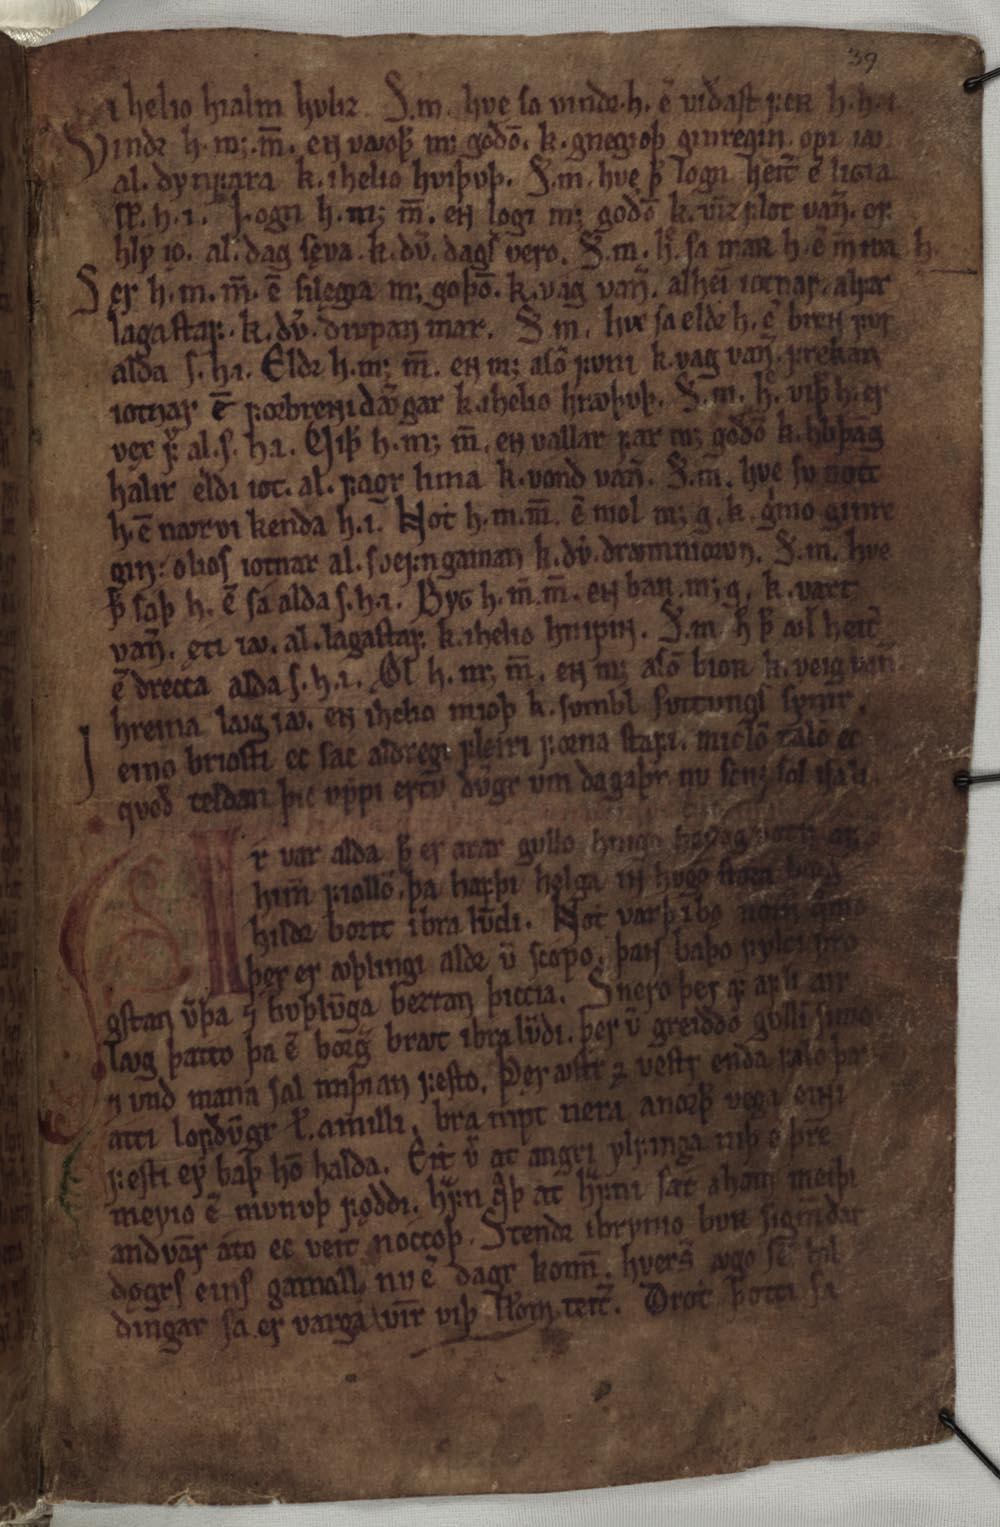 39
i helio hialm huliz. S.m. hve sa vindr .h. e᷎ viðast feʀ h. h. i.
Vindr h. m; m̅. en vavoþ m; godo̅. k. gneggioþ ginregin. opi iav
al. dynfara k. i helio hviþvþ. S.m. hve þ̅ logn heit̅ e̅ ligia
sk̅. h. i. Logn h. m; m̅. en logi m; godo̅ k. vi̅zflot van̅. of
hly io. al. dag seva. k. dv̅. dags vero. S.m. hv̅. sa maʀ h. e̅ m̅ roa h.
Sęr h. m. m̅. e̅ silęgia m; goþo̅. k. vag van̅. alhei̅ iotnar. alfar
lagastaf. k. dv̅. diupan mar. S.m. hve sa eldr h. e̅ breɴ fyr
alda s. h. i. Eldr h. m; m̅. en m; aso̅ funi k. vag van̅. frekan
iotnar e̅ forbreɴi dv̅gar k. i helio hravþvþ. S.m. hv̅ viþ h. er
vex f̅ al. s. h. i. Viþ h. m; m̅. en vallar fax m; godo̅ k. hliþag
halir eldi iot. al. fagr lima k. vond van̅. S.m. hve su nott
h. e̅ navrvi kenda h. i. Not h. m. m̅. e̅ niol m; g. k. grimo ginre
gin: olios iotnar al. svefngaman k. dv̅. dravmniorvn. S.m. hve
þ̅ saþ h. e̅ sa alda s. h. i. Byg h. m̅. m̅. en barr m; g. k. vaxt
van̅. ęti iav. al. lagastaf. k. i helio hnipin. S.m. h̅ þ̅ avl heit̅
e̅ drecca alda s. h. i. Ǫl h. m; m̅. en m; aso̅ bioʀ k. veig van̅
hreina lavg iav. en i helio mioþ k. sumbl suttungs synir.
I eino briosti ec sac aldregi fleiri forna stafi. miclo̅ talo̅ ec
qveð teldan þic uppi ertv̅ dv̅gr um dagaþr nu scin; sol i sali.
Ar var alda þ̅ er arar gullo hnigo heilog votn af
himi̅ fiollo̅. þa hafþi helga in̅ hugo stora borg
hildr borit i bralv̅di. Not varþ i bo nornir qvomo
þer er avþlingi aldr v̅ scopo. þan̅ baþo fylci fre
gstan v̅þa ⁊ bvþlv̅ga beztan þiccia. Snero þer af afli avr
lavg þatto þa e̅ borg̅ bravt i bralv̅di. þer v̅ greiddo̅ gullin simo
⁊ und mana sal miþian festo. Þer avstr ⁊ vestr enda falo þar
atti lofdv̅gr l̅. a milli. bra nipt nera a norþ vega einni
festi ey baþ ho̅ halda. Eit v̅ at angri ylfinga niþ ⁊ þr̅e
meyio e̅ mvnvþ foddi. hrafn qþ at hrafni sat a ham meiþi
andva̅r ato ec veit nocꝯþ. Stendr i brynio buʀ sigm̅dar
dogrs eins gamall nu e̅ dagr komi̅. hvess̅ avgo se̅ hil
dingar sa er varga vi̅r viþ sc̅lom teit̅. Drot þotti sa